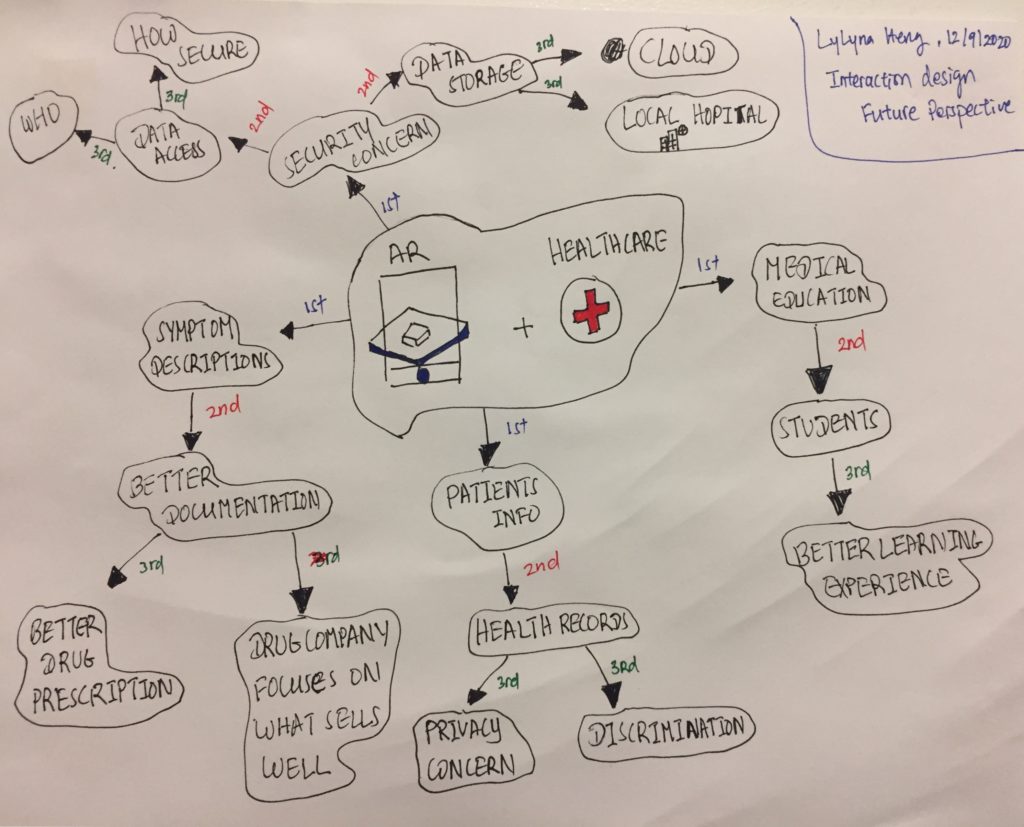 LyLyna Heng, 12/9/2020
Interaction design
Future Perspective
HOW
SECURE
3rd
WHO
3rd.
DATA
ACCESS
2nd
SECURITY
CONCERN
2nd
DATA
STORAGE
3rd
CLOUD
3rd
LOCAL HOPITAL
1st
AR
+
HEALTHCARE
1st
MEDICAL
EDUCATION
2nd
STUDENTS
3rd
BETTER LEARNING
EXPERIENCE
1st
SYMPTOM
DESCRIPTIONS
2nd
BETTER
DOCUMENTATION
3rd
BETTER
DRUG
PRESCRIPTION
3rd
DRUG COMPANY
FOCUSES ON
WHAT SELLS
WELL
1st
PATIENTS
INFO
2nd
HEALTH RECORDS
3rd
PRIVACY
CONCERN
3Rd
DISCRIMINATION